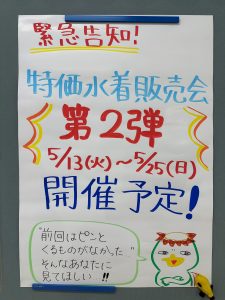 緊急告知!
特価水着販売会
第2弾
5/13(火)～5/25(日)
開催予定!
"前回はピンと
くるものがなかった"
そんなあなたに
見てほしい!!